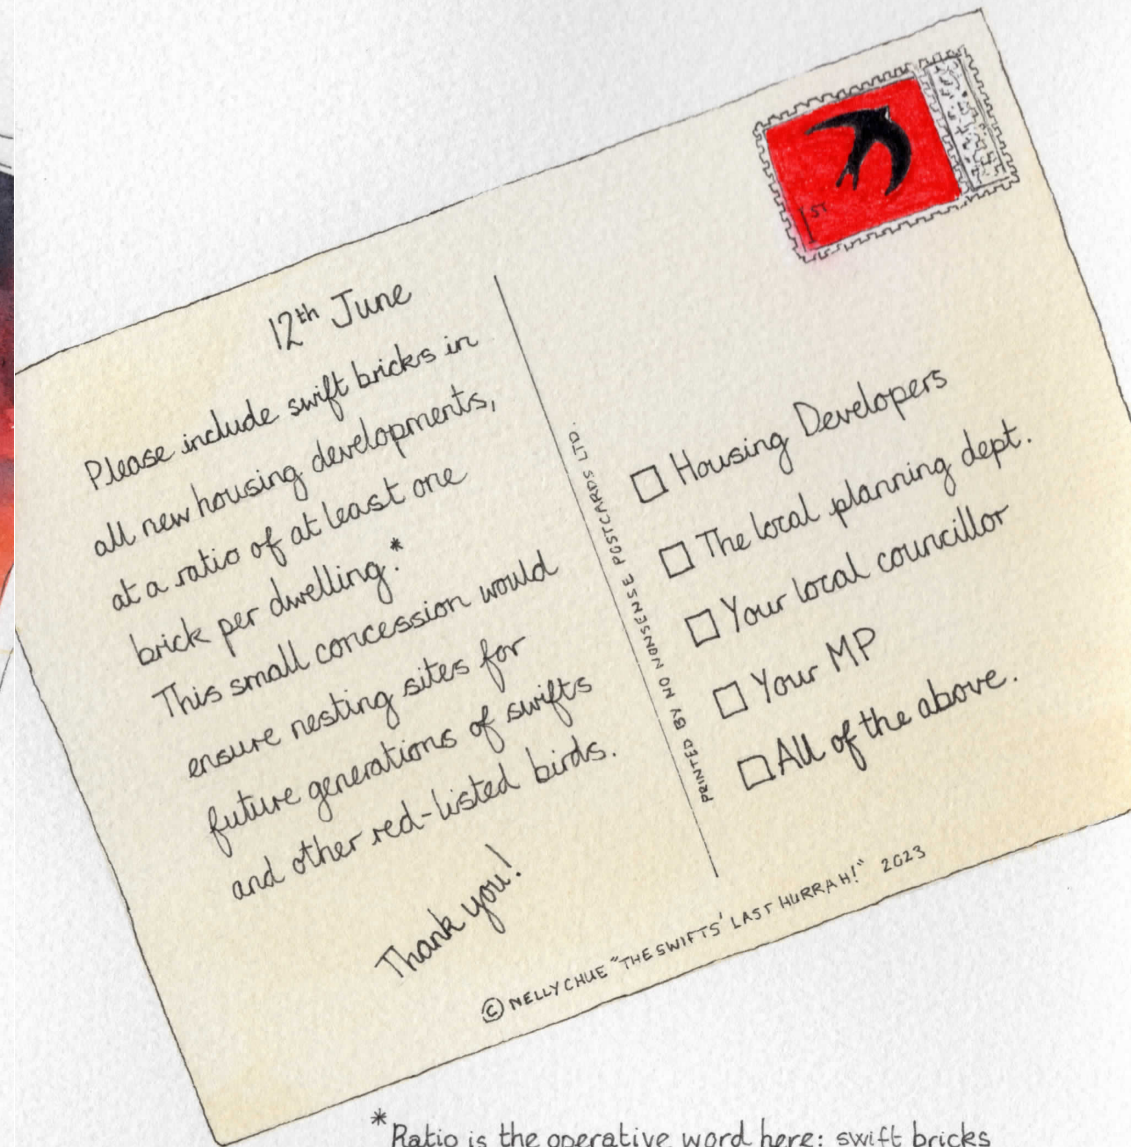 1ST
12th June
Please include swift bricks in
all new housing developments,
at a ratio of at least one
brick per dwelling.*
This small concession would
ensure nesting sites for
future generations of swifts
and other red-listed birds.
Thank you!
PRINTED BY NO NONSENSE POSTCARDS LTD.
Housing Developers
The local planning dept.
Your local councillor
Your MP
All of the above.
© NELLY CHUE "THE SWIFTS' LAST HURRAH!" 2023
*Ratio is the operative word here: swift bricks